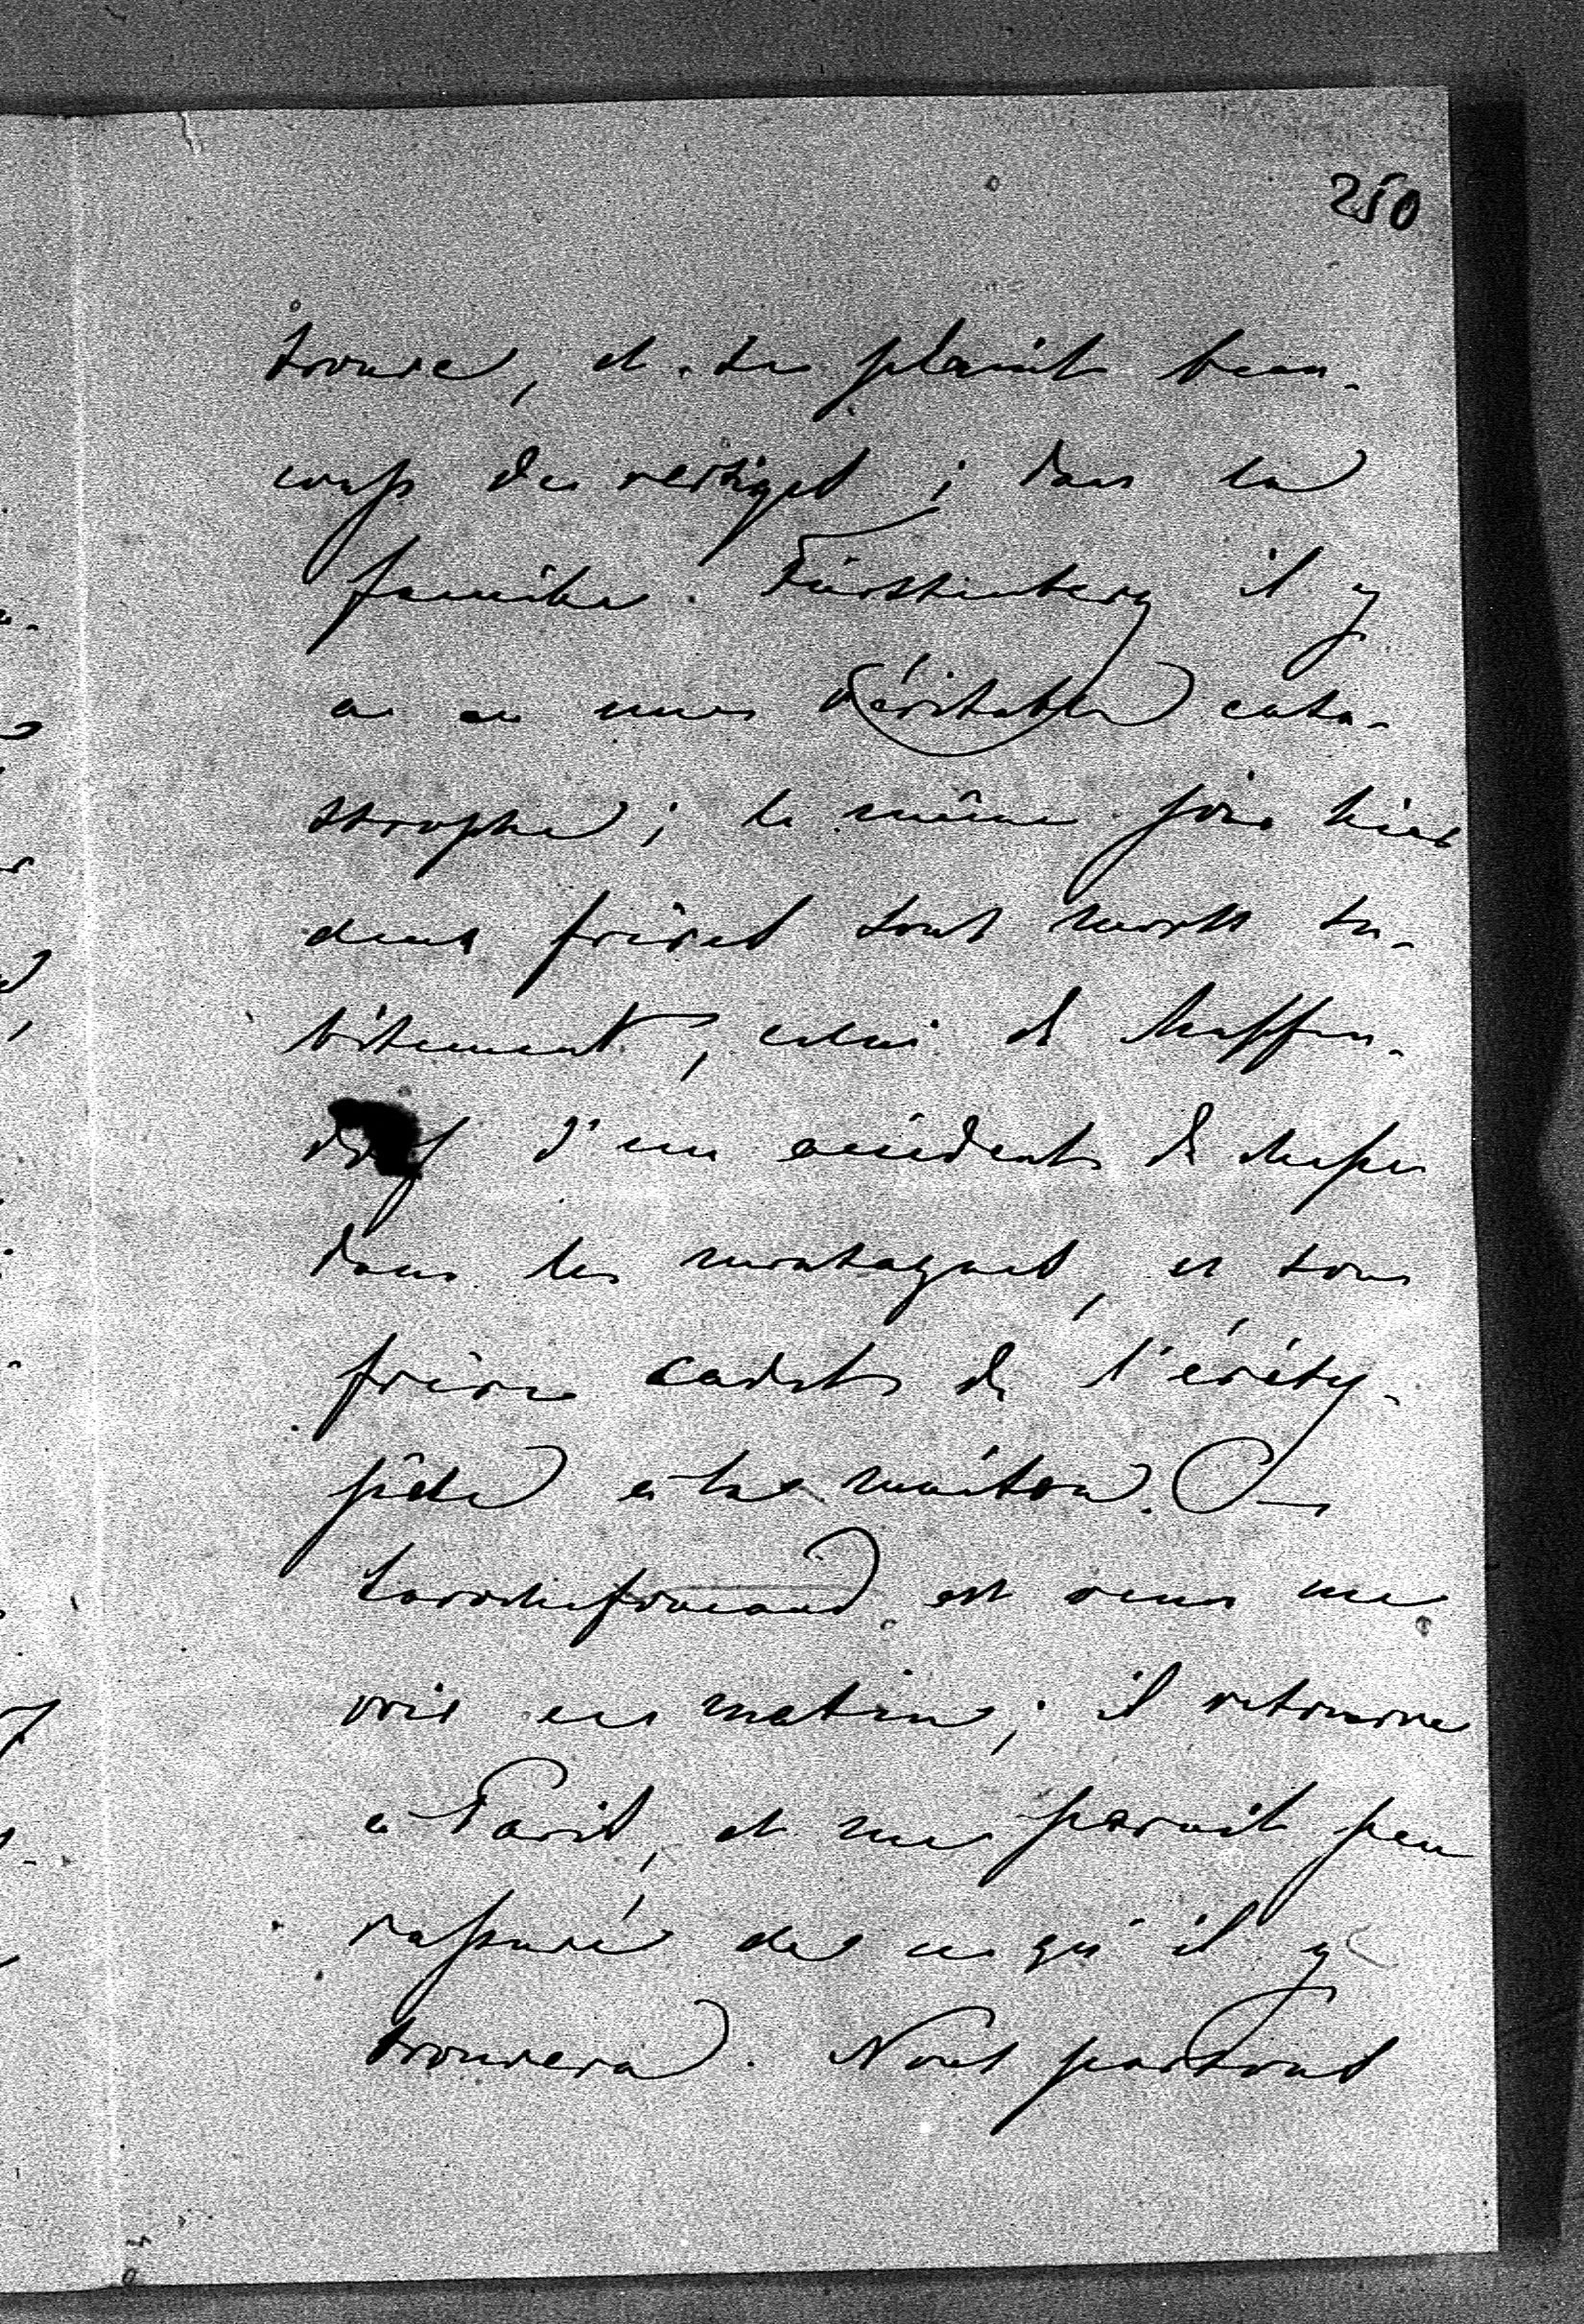 250
trouve, et se plaint beau-
coup de vertiges ; dans la
famille Fürstenberg il y
a eu une véritable cata-
strophe ; le même jour hier
deux frères sont morts su-
bitement, celui de
d'un accident de chasse
dans les montagnes, et son
frère cadet de l'érésy-
pèle à la maison. –
Larochefoucaud est venu me
voir ce matin ; il retourne
à Paris, et me paraît peu
rassuré de ce qu'il y
trouvera. Nous partons